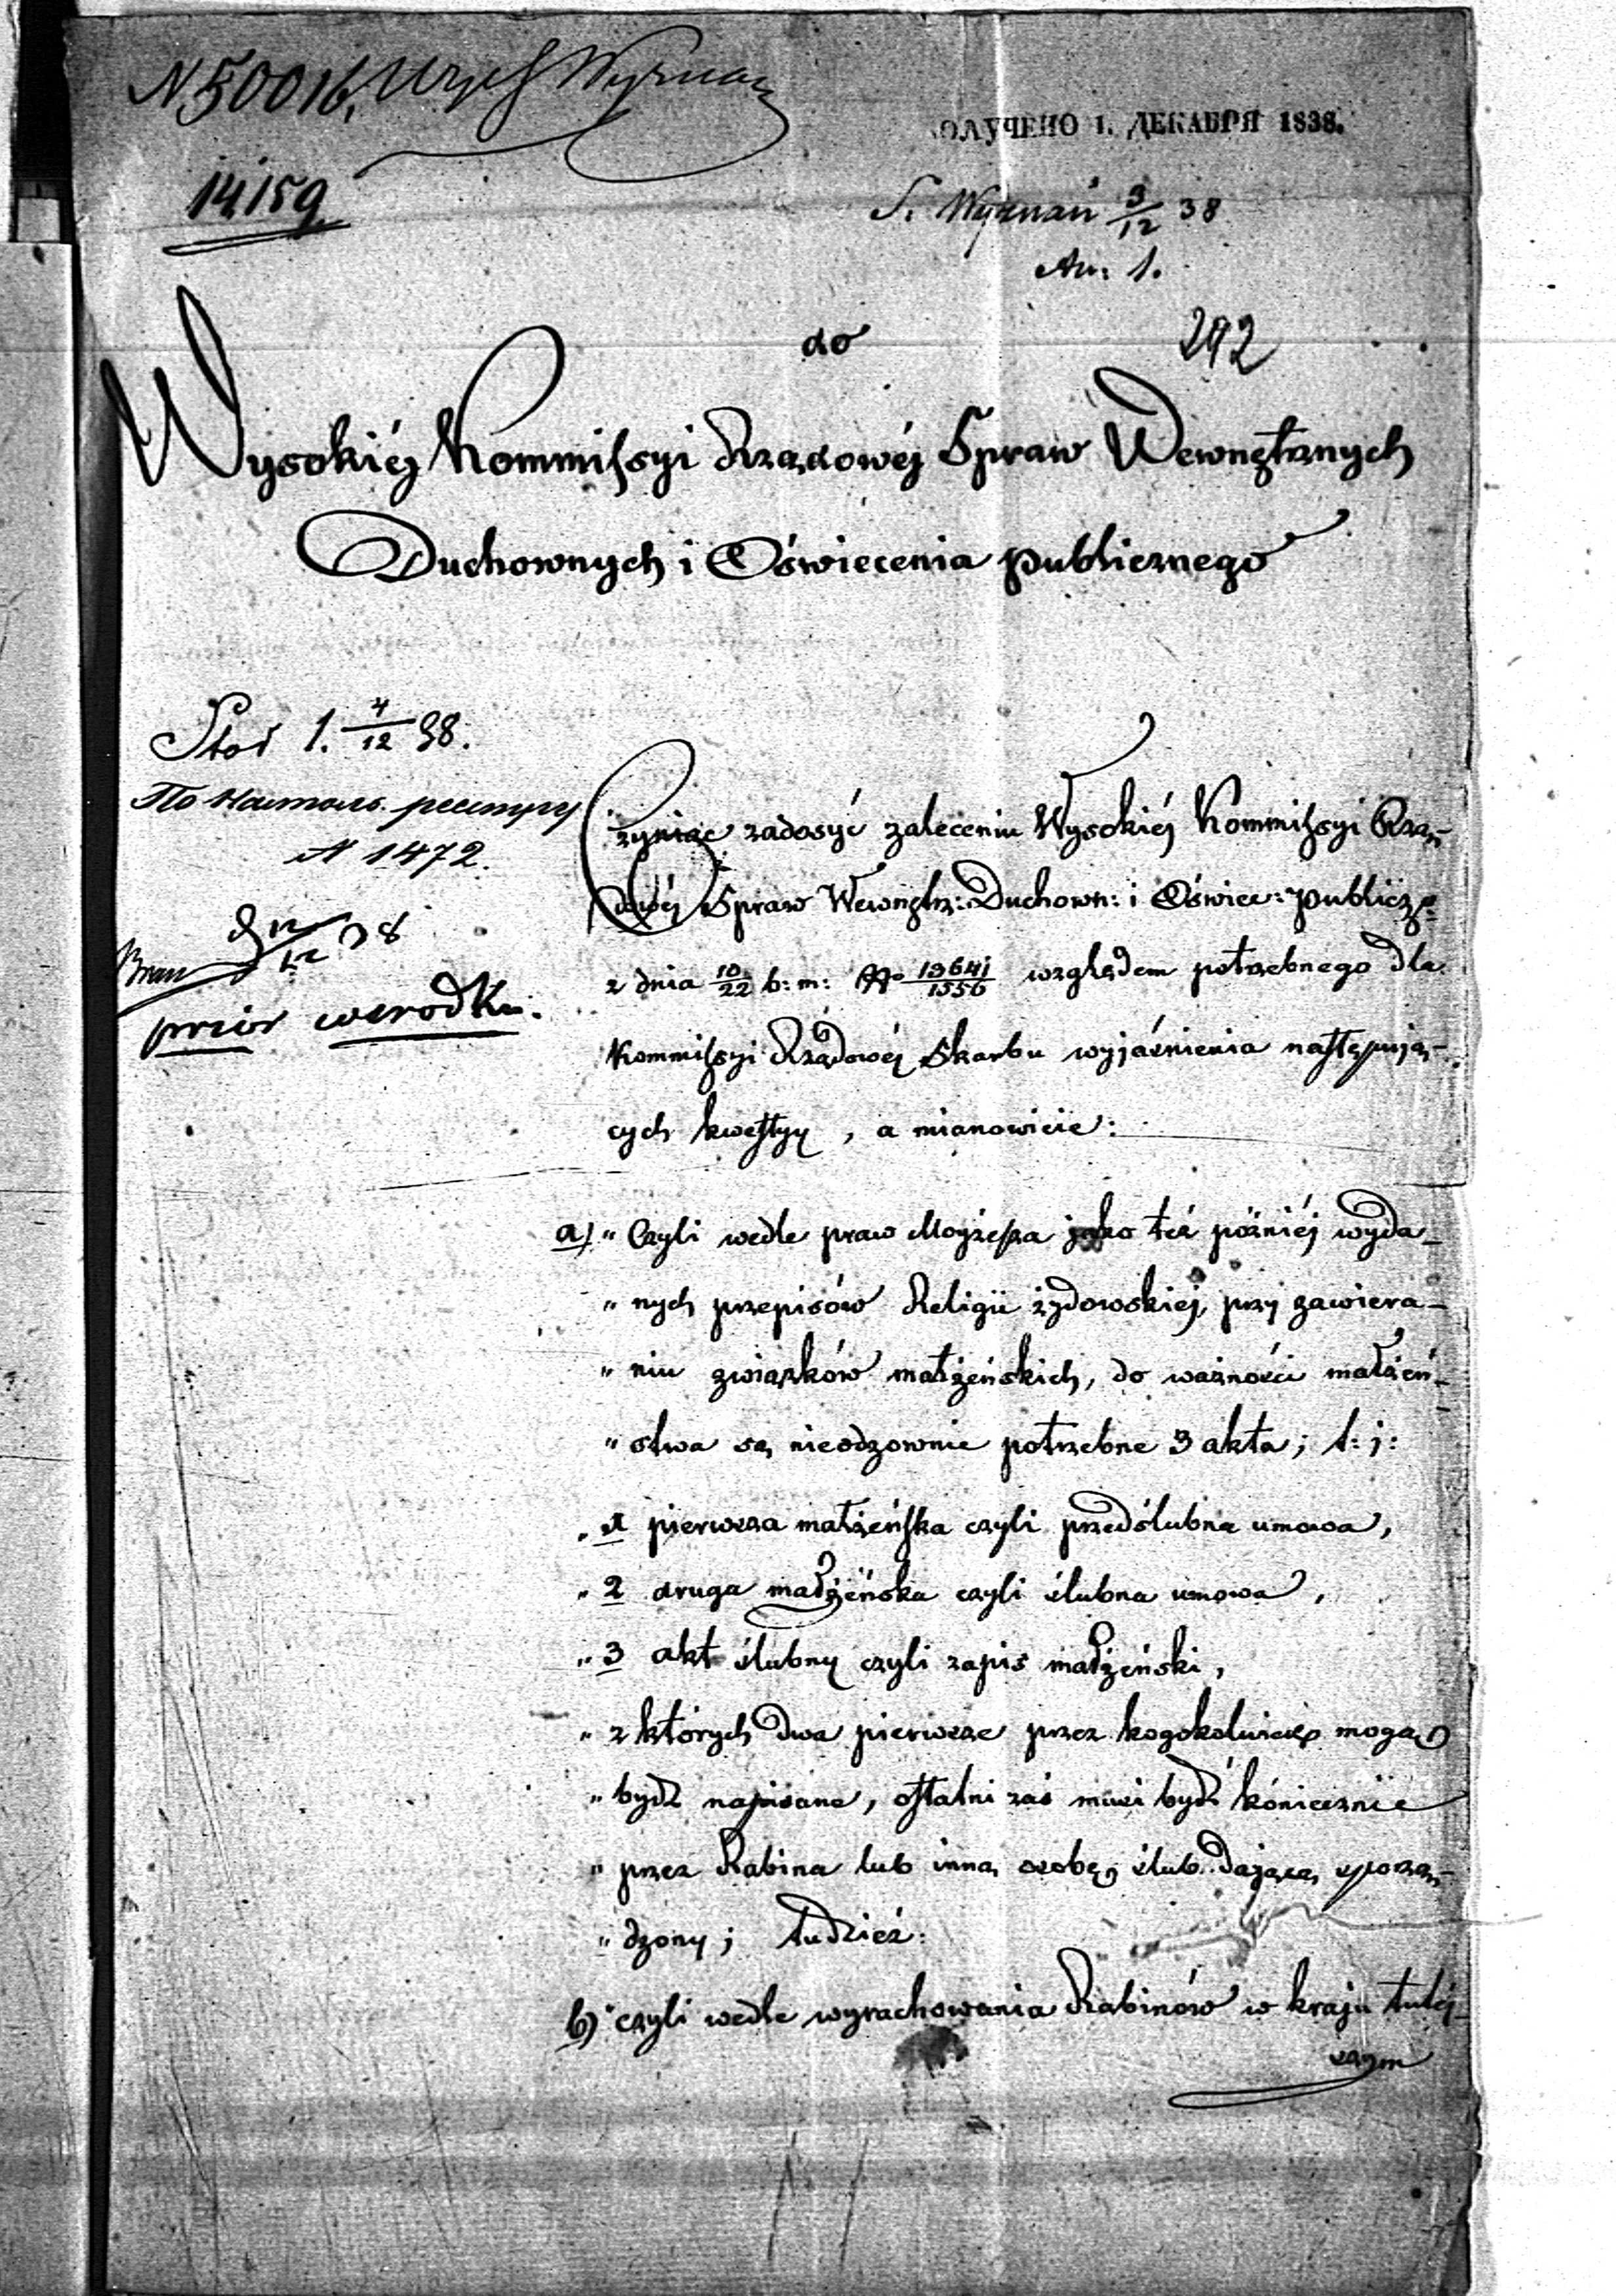 N 50016,
14159
ОЛУЧЕНО 1. ДЕКАБРЯ 1838.
S. Wyznań 3/12 38
An: 1.
292
do
Wysokiéj Kommissyi Rządowéj Spraw Wewnętrznych
Duchownych i Oświecenia publicznego
1. 4/12 38.
По настоль. реестру
N 1472.
12/12 38
Czyniąc zadosyć zaleceniu Wysokiéj Kommissyi Rzą-
dowéj Spraw Wewnętrz: Duchown: i Oświec: publicz:
z dnia 10/22 b: m: No 13641/1556 względem potrzebnego dla
Kommissyi Rządowéj Skarbu wyjaśnienia następują-
cych kwestyy, a mianowicie:
a) „ Czyli wedle praw Mojżesza jako też póżniéj wyda-
„ nych przepisów Religii żydowskiej, przy zawiera-
„ niu związków małżeńskich, do ważności małżeń-
„ stwa są nieodzownie potrzebne 3 akta; t: j:
„ 1 pierwsza małżeńska czyli przedślubna umowa,
„ 2 druga małżeńska czyli ślubna umowa,
„ 3 akt ślubny czyli zapis małżeński,
„ z których dwa pierwsze przez kogokolwiek mogą
„ bydź napisane, ostatni zaś musi bydź koniecznie
„ przez Rabina lub inną osobę, ślub dającą sporzą-
„ dzony; tudzież:
b) „ czyli wedle wyrachowania Rabinów w kraju tutéj-
szym